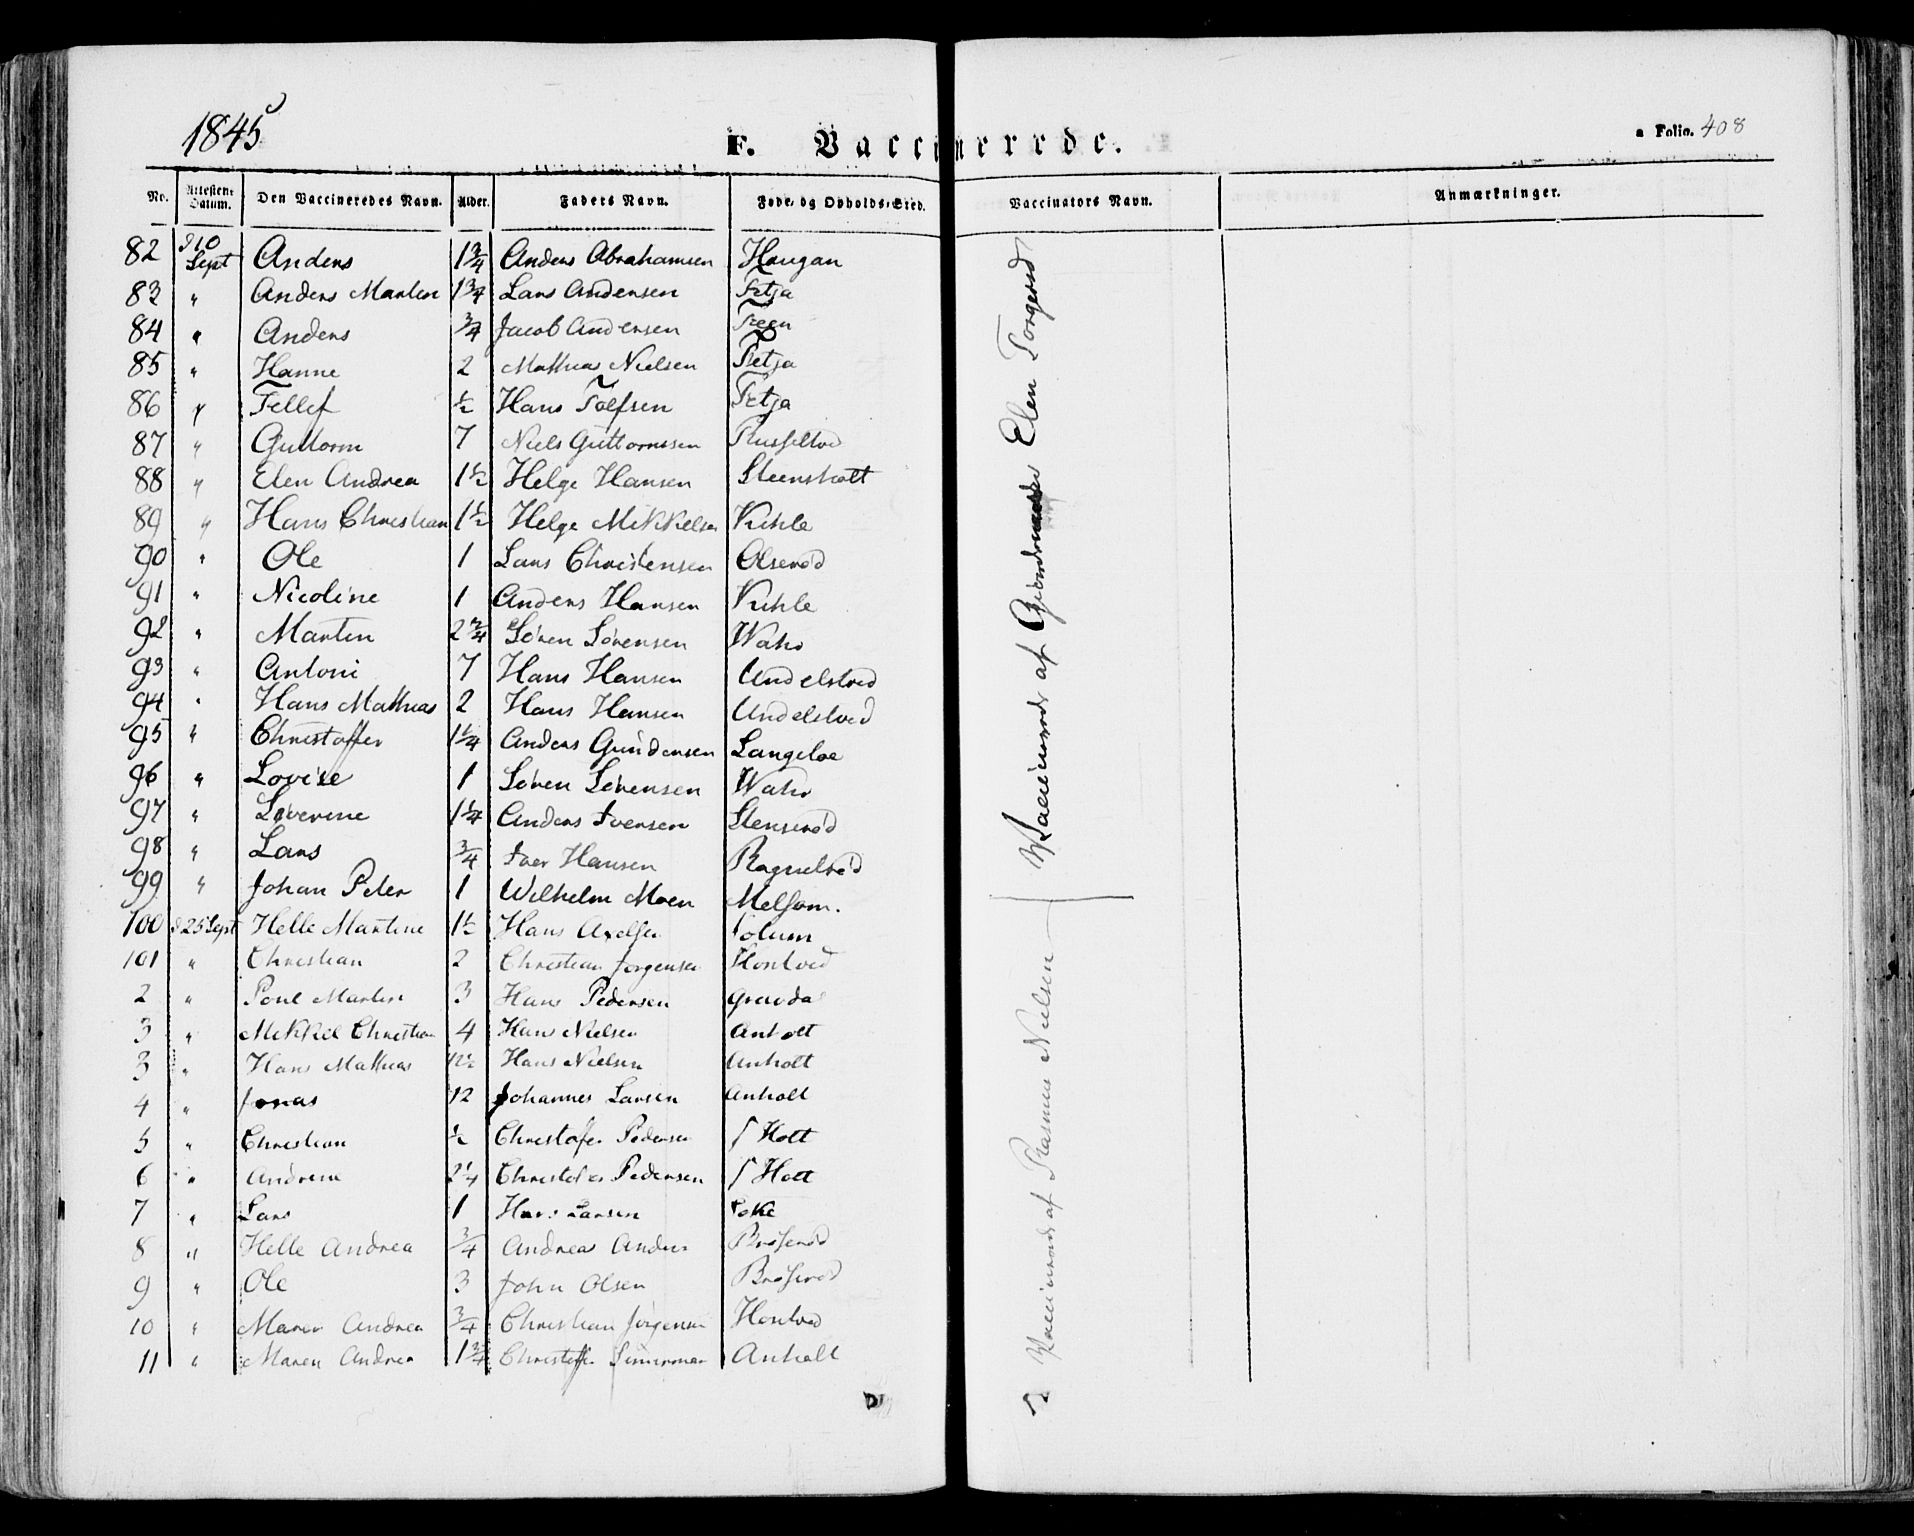 1845
F. Vaccinerede.
a Folio. 408
No. Attestens Datum. Den Vaccineredes Navn. Alder. Faders Navn. Føde- og Opholds-Sted. Vaccinators Navn. Anmærkninger.
82 d 10 Sept Anders 1 3/4 Anders Abrahamsen Haugan
83 " Anders Marten 1 3/4 Lars Andersen Fetja
84 " Anders 3/4 Jacob Andersen Feen
85 " Hanne 2 Mathias Nielsen Fetja
86 " Tellef 1/2 Hans Tolfsen Fetja
87 " Guttorm 7 Niels Guttormsen
88 " Elen Andrea 1 1/2 Helge Hansen Steensholt
89 " Hans Christian 1 1/2 Helge Mikkelsen Kihle
90 " Ole 1 Lars Christensen Olserød
91 " Nicoline 1 Anders Hansen Kihle
92 " Marten 2 3/4 Søren Sørensen
93 " Antoni 7 Hans Hansen Undelstved
94 " Hans Mathias 2 Hans Hansen Undelstved
95 " Christoffer 1 1/4 Anders Gundersen Langeloe
96 " Lovise 1 Søren Sørensen
97 " Severine 1 1/4 Anders Iversen Stenserød
98 " Lars 3/4 Iver Hansen
99 " Johan Peter 1 Wilhelm Moen Melsom.
100 d 25 Sept Helle Martine 1 1/2 Hans Axelsen Solum
101 " Christian 2 Christian Jørgensen Hontved
2 " Poul Martin 3 Hans Pedersen
3 " Mikkel Christian 4 Hans Nielsen Anholt
3 " Hans Mathias Hans Nielsen Anholt
4 " Jonas 12 Johannes Larsen Anholt
5 " Christian 1/2 Christofer Pedersen Holt
6 " Andrine 2 1/4 Christofer Pedersen Holt
7 " Lars 1 Hans Larsen
8 " Helle Andrea 3/4 Andreas Anders
9 " Ole 3 John Olsen
10 " Maren Andrea 3/4 Christian Jørgensen Hontved
11 " Maren Andrea 1 3/4 Christoffer Simerman Anholt
Vaccinerede af Elen Torgersd
Vaccinerede af Rasmus Nielsen